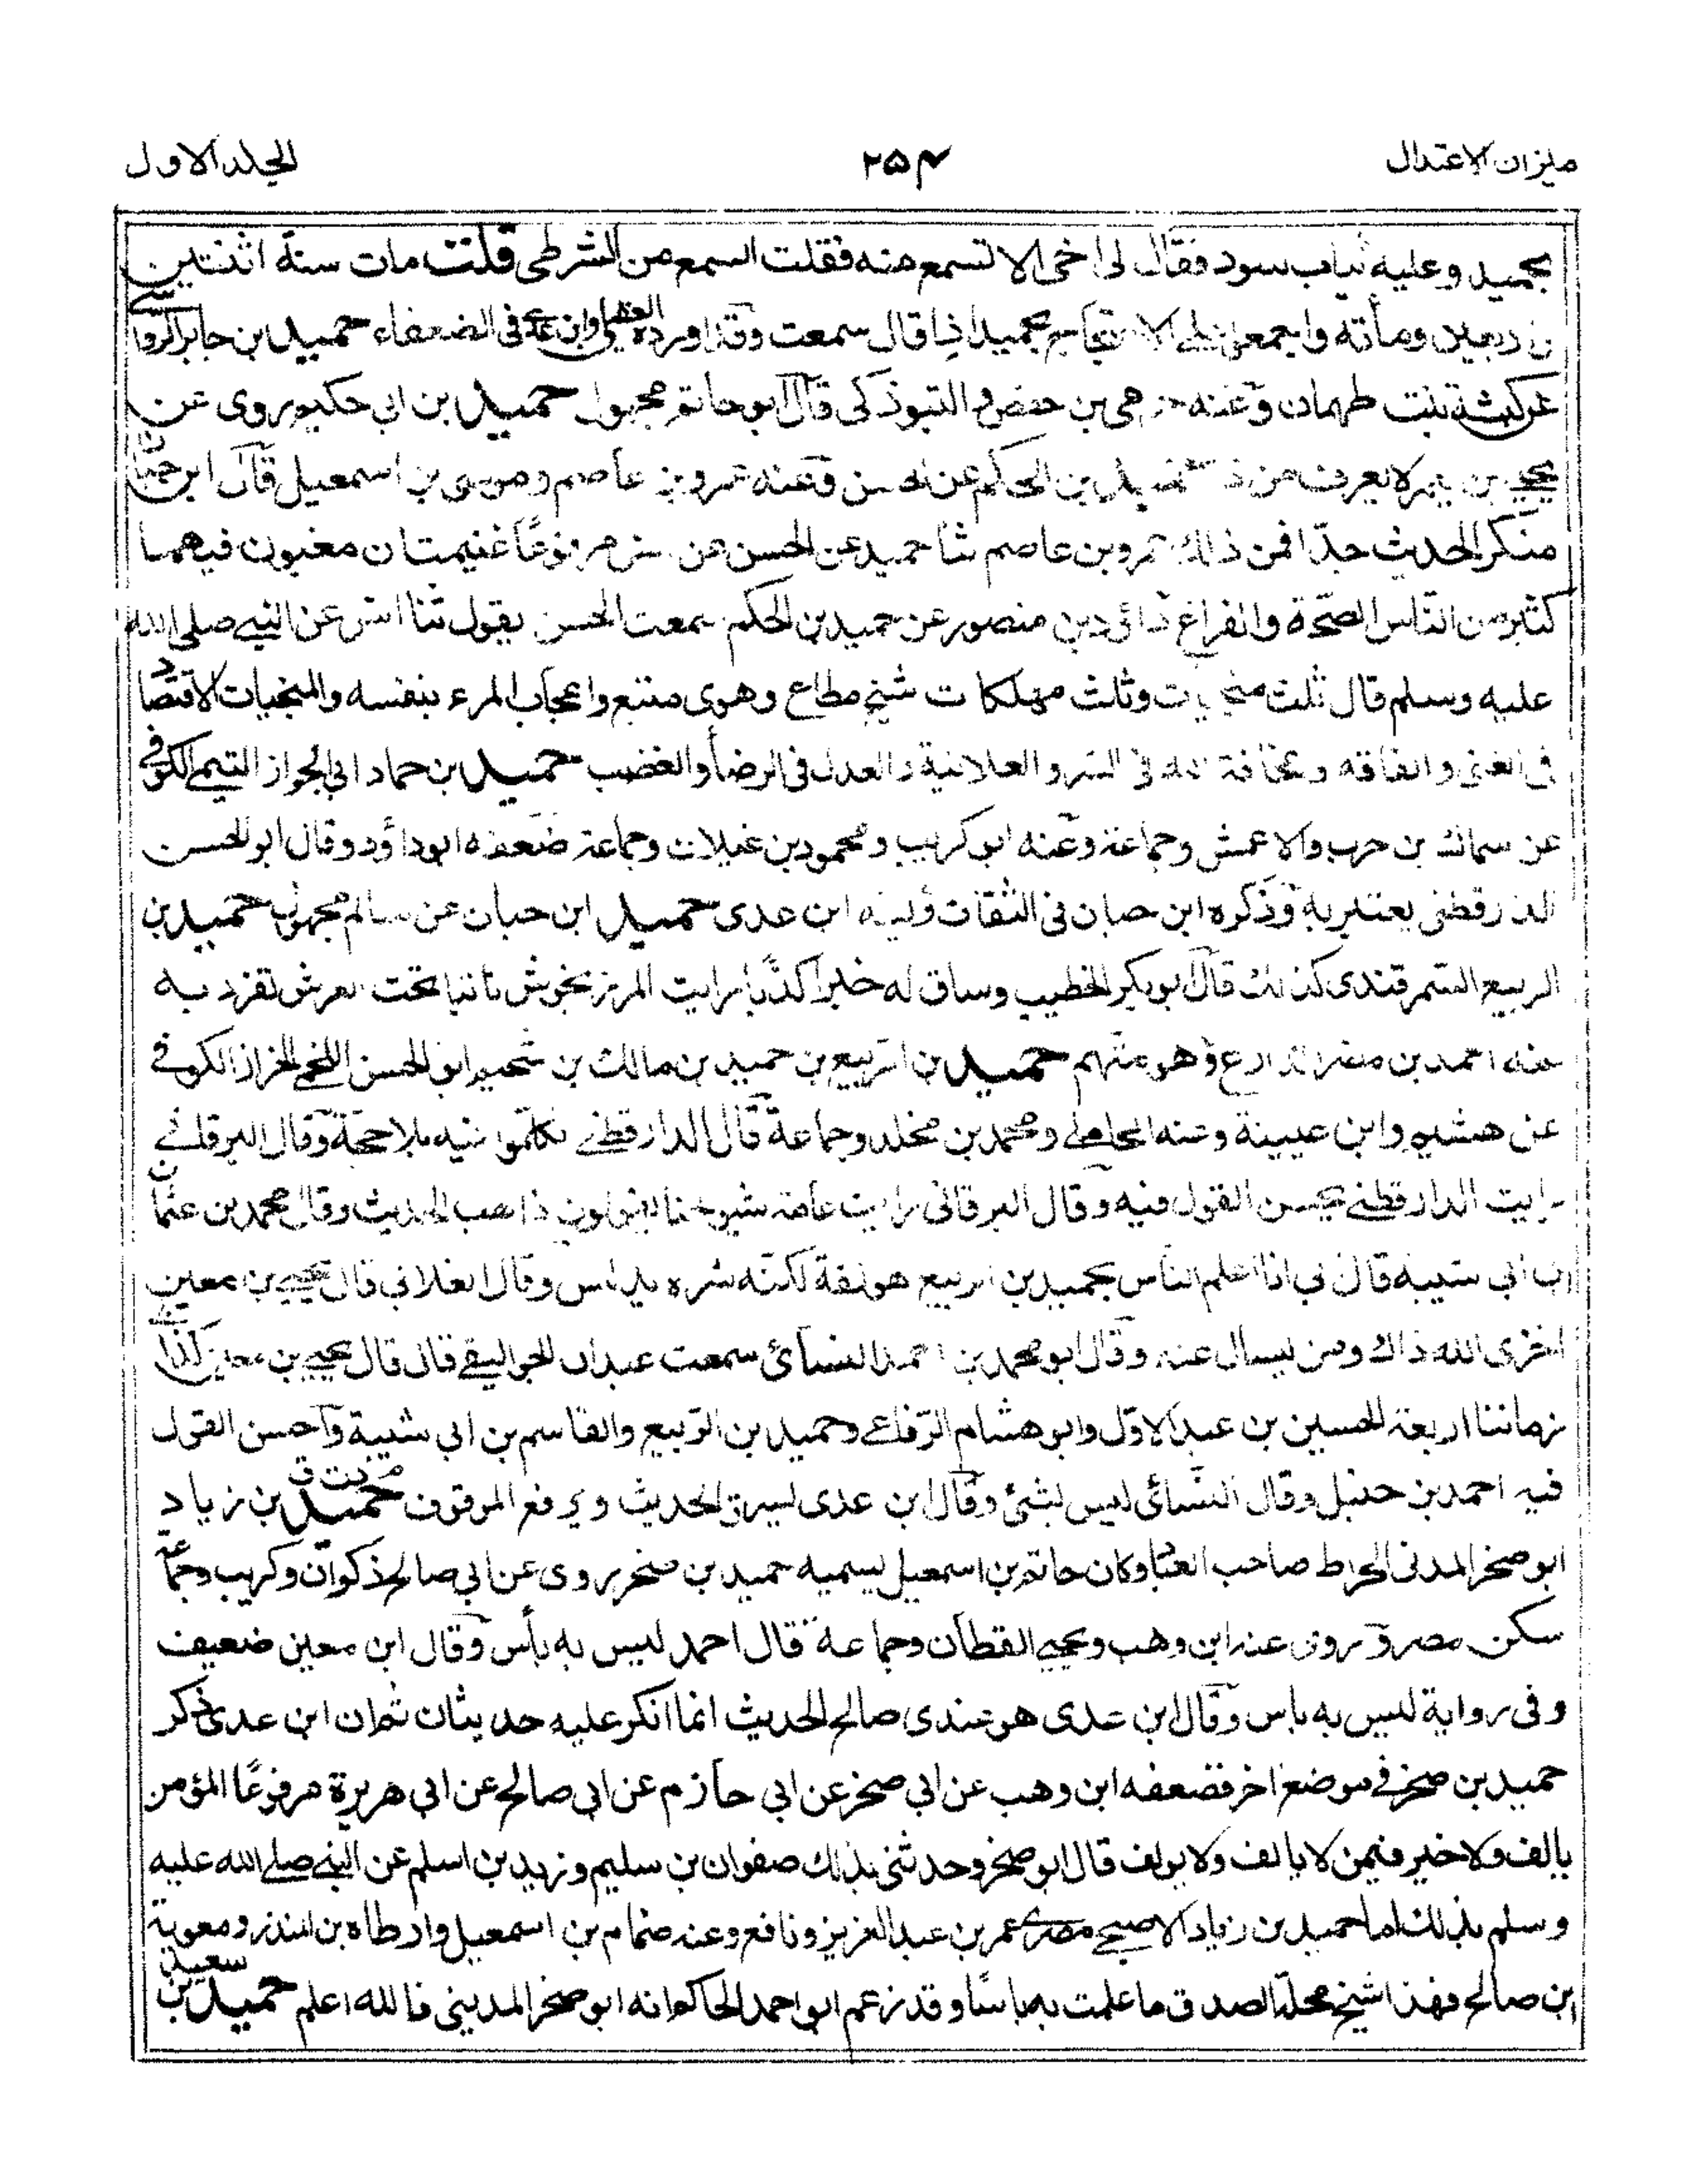 ميزان الاعتدال
۲۵۴
الجلد الاول
بحميد وعليه ثياب سود فقال لى اخى الا تسمع منه فقلت اسمع من الشرطى قلت مات سنة اثنتين
واربعين ومأته واجمعوا على الاحتجاج بحميد اذا قال سمعت وقد اورده العقيلى وابن عدى فى الضعفاء حميد بن جابر الرواسى
عن كبشة بنت طهمان وعنه حرمى بن حفص و التبوذكى قال ابو حاتم مجهول حميد بن ابى حكيم روى عن
يحيى بن لا يعرف من ذا حميد بن الحكم عن الحسن وعنه عمرو بن عاصم وموسى بن اسمعيل قال ابن حبان
منكر الحديث جدّا فمن ذلك عمرو بن عاصم ثنا حميد عن الحسن عن انس مرفوعًا غنيمتان مغبون فيهما
كثير من الناس الصحّة والفراغ داؤد بن منصور عن حميد بن الحكم سمعت الحسن يقول ثنا انس عن النبى صلى الله
عليه وسلم قال ثلث منجيات وثلث مهلكات شح مطاع وهوى متبع واعجاب المرء بنفسه والمنجيات الاقتصاد
فى الغنى و الفاقه ومخافة الله فى السر و العلانية والعدل فى الرضأ والغضب حميد بن حماد ابى الجواز التيمى الكوفى
عن سماك بن حرب والاعمش وجماعة وعنه ابو كريب و محمود بن غيلان وجماعة ضعفه ابو داؤد وقال ابو الحسن
الدارقطنى يعتبر به وذكره ابن حبان فى الثقات ولينه ابن عدى حميد ابن حبان عن سالم مجهول حميد بن
الربيع السّمرقندى كذلك قال ابو بكر الخطيب وساق له خبرا كذبًا تحت العرش تفرد به
عنه احمد بن نصر الذارع وهو متهم حميد بن الربيع بن حميد بن مالك بن سحيم ابو الحسن اللخمى الخزاز الكوفى
عن هشيم وابن عيينة وعنه المحاملى ومحمد بن مخلد وجماعة قال الدارقطنى تكلّموا فيه بلا حجة وقال البرقانى
رايت الدارقطنى يحسن القول فيه وقال البرقانى رايت عامّة شيوخنا يقولون ذاهب الحديث وقال محمد بن عثمان
ابن ابى شيبه قال ابى انا اعلم الناس بحميد بن الربيع هو ثقة لكنّه شره يدلس وقال الغلابى قال يحيى بن معين
اخزى الله ذاك ومن يسال عنه وقال ابو محمد بن احمد النسائى سمعت عبدان الجواليقى قال قال يحيى بن معين كذّابى
زماننا اربعة الحسين بن عبد الاوّل وابو هشام الرّفاعى وحميد بن الرّبيع والقاسم بن ابى شيبة واحسن القول
فيه احمد بن حنبل وقال النسّائى ليس بشئ وقال ابن عدى يسرق الحديث ويرفع الموقوف حميد م د ت ق بن زياد
ابو صخر المدنى الخراط صاحب العبا وكان حاتم بن اسمعيل يسميه حميد بن صخر روى عن ابى صالح ذكوان وكريب وجماعة
سكن مصر و روى عنه ابن وهب ويحيى القطان وجماعة قال احمد ليس به بأس وقال ابن معين ضعيف
وفى رواية ليس به باس وقال ابن عدى هو عندى صالح الحديث انما انكر عليه حديثان ثم ان ابن عدى ذكر
حميد بن صخر فى موضع اخر فضعفه ابن وهب عن ابى صخر عن ابى حازم عن ابى صالح عن ابى هريرة مرفوعًا المؤمن
يالف ولا خير فيمن لا يالف ولا يولف قال ابو صخر وحدثنى بذلك صفوان بن سليم وزيد بن اسلم عن النبى صلى الله عليه
وسلم بذلك اما حميد بن زياد الاصبحى مصرى عمر بن عبد العزيز ونافع وعنه ضمام بن اسمعيل وارطاه بن المنذر ومعوية
ابن صالح فهذا شيخ محلّه الصدق ما علمت به باسًا وقد زعم ابو احمد الحاكم انه ابو صخر المدينى فالله اعلم حميد بن سعيد